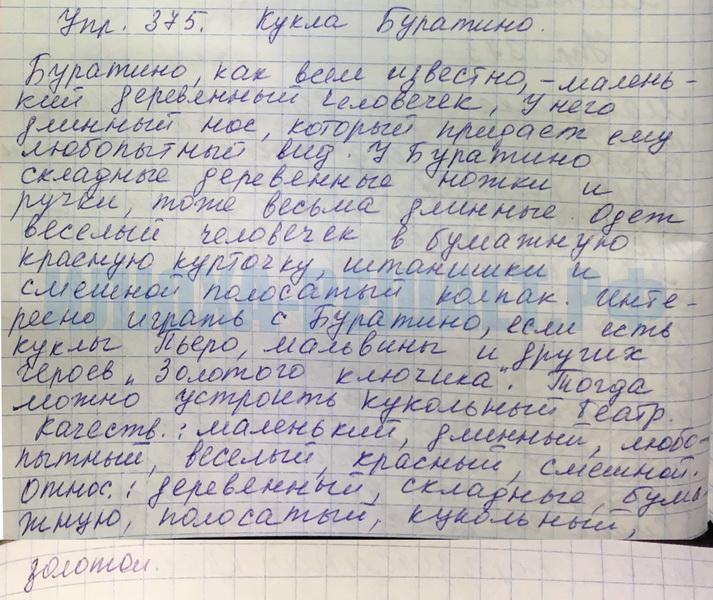 Упр. 375. Кукла Буратино.
Буратино, как всем известно, – малень-
кий деревянный человечек, У него
длинный нос, который придаёт ему
любопытный вид. У Буратино
складные деревянные ножки и
ручки, тоже весьма длинные. Одет
веселый человечек в бумажную
красную курточку, штанишки и
смешной полосатый колпак. Инте-
ресно играть с Буратино, если есть
куклы Пьеро, мальвины и других
героев „Золотого ключика“. Тогда
можно устроить кукольный театр.
Качеств.: маленький, длинный, любо-
пытный, веселый, красный, смешной.
Относ.: деревянный, складные, бума-
жную, полосатый, кукольный,
золотой.